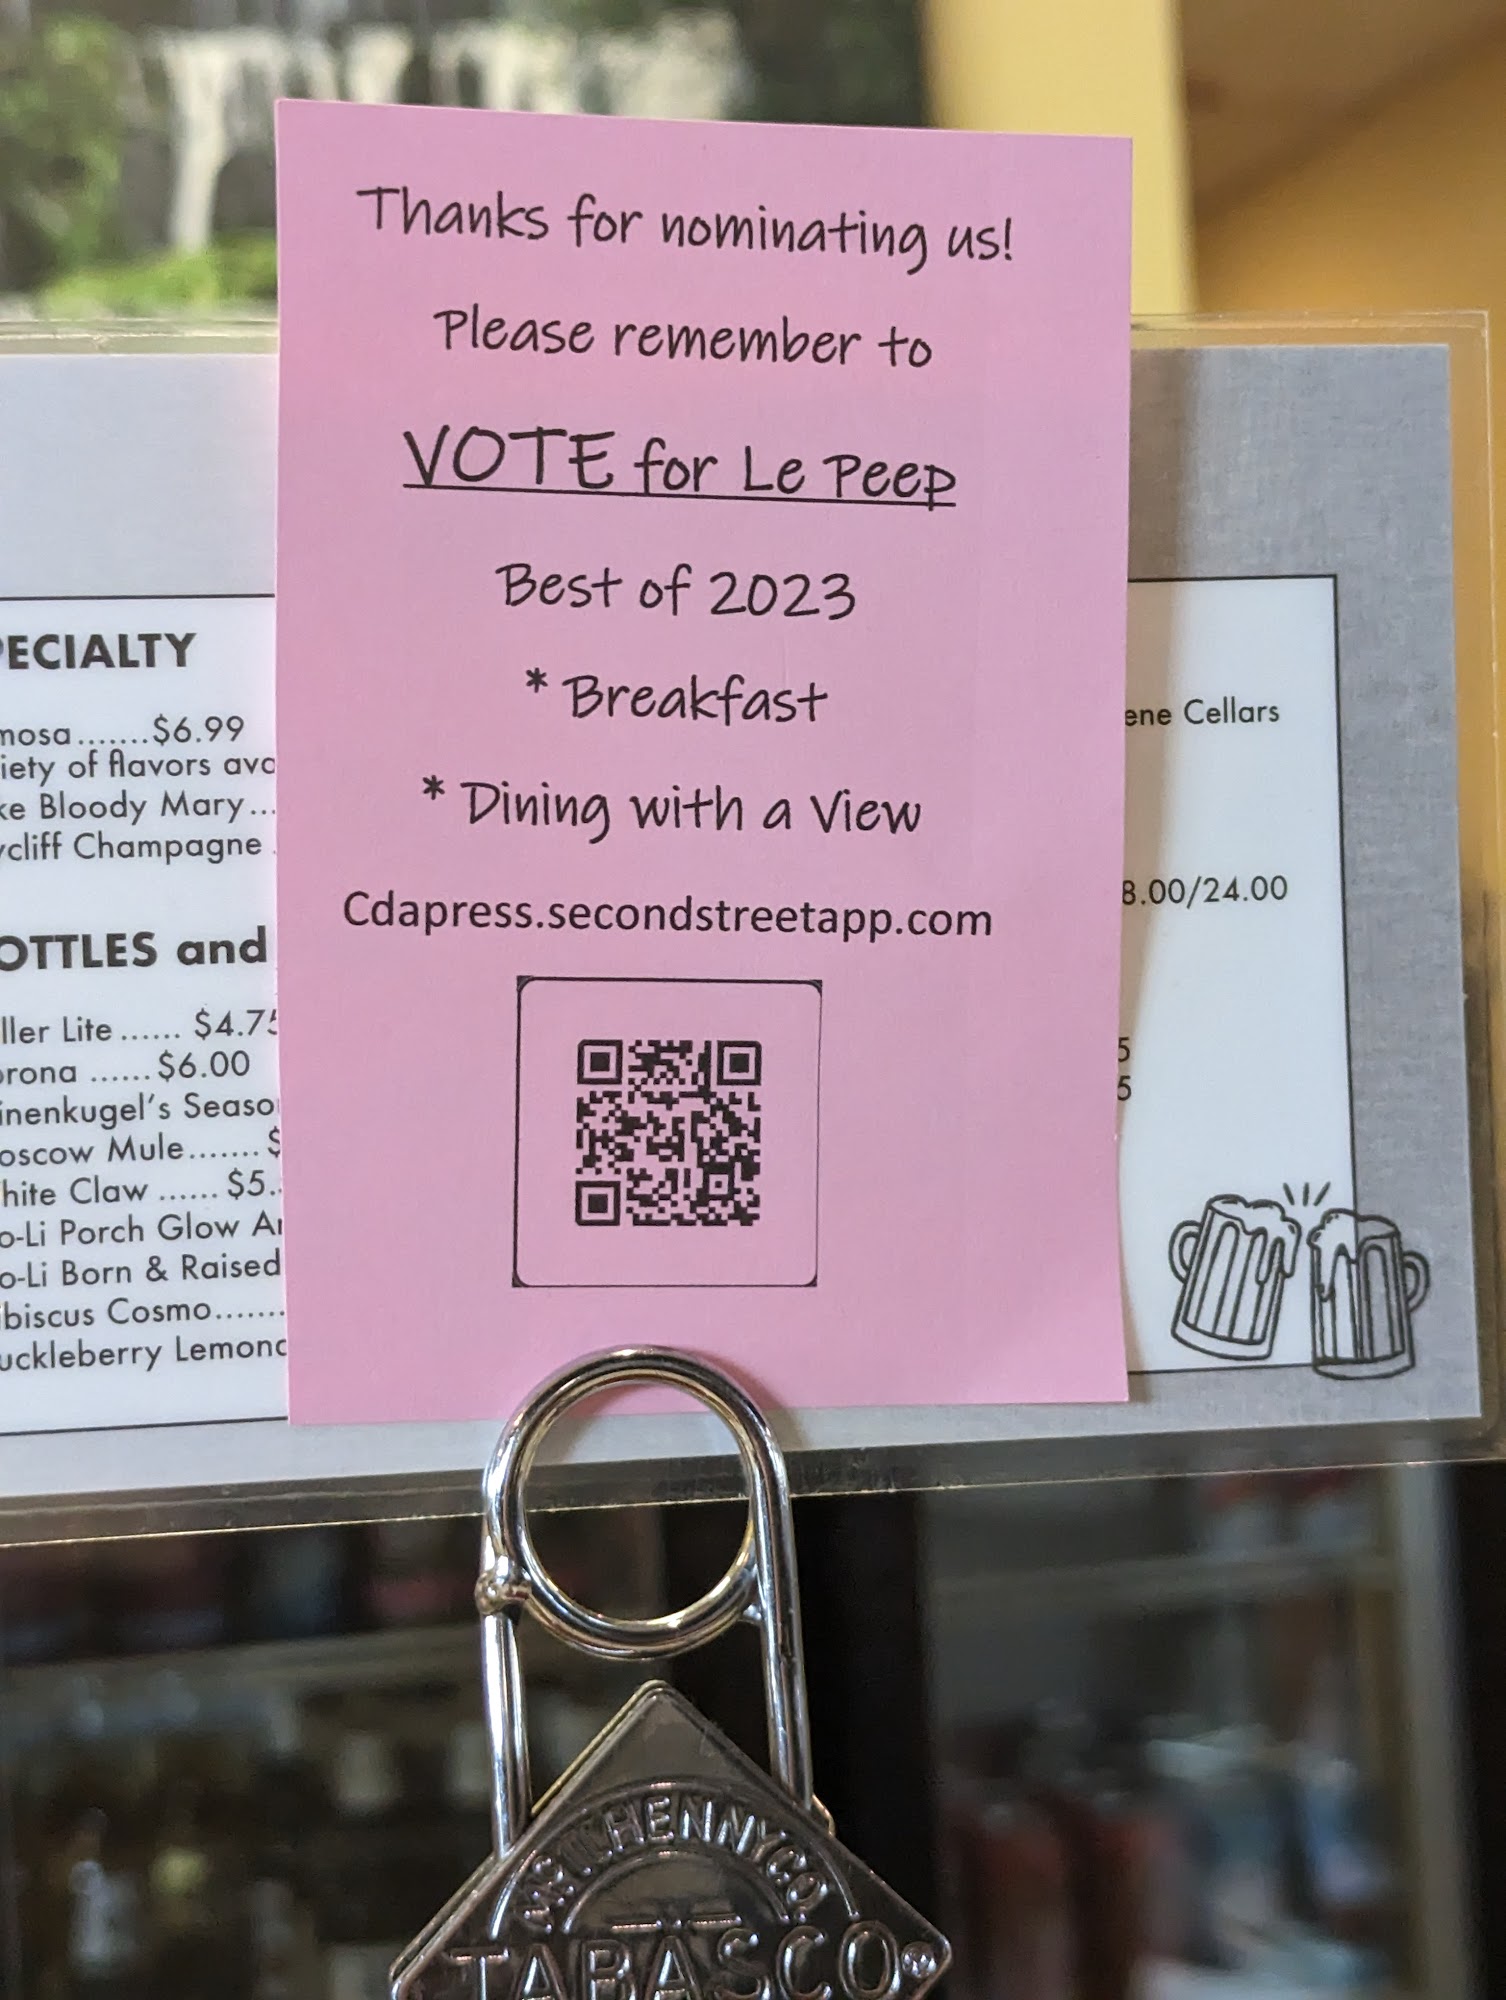 Thanks for nominating us!
Please remember to
VOTE for Le Peep
Best of 2023
* Breakfast
* Dining with a View
Cdapress.secondstreetapp.com
PECIALTY
mosa.......$6.99
iety of flavors ava
ke Bloody Mary...
ycliff Champagne
OTTLES and
ller Lite ...... $4.75
orona ......$6.00
inenkugel's Seaso
oscow Mule....... $
hite Claw ...... $5.
o-Li Porch Glow A
o-Li Born & Raised
ibiscus Cosmo.......
uckleberry Lemon
ene Cellars
8.00/24.00
5
5
McILHENNY CO.
TABASCO®